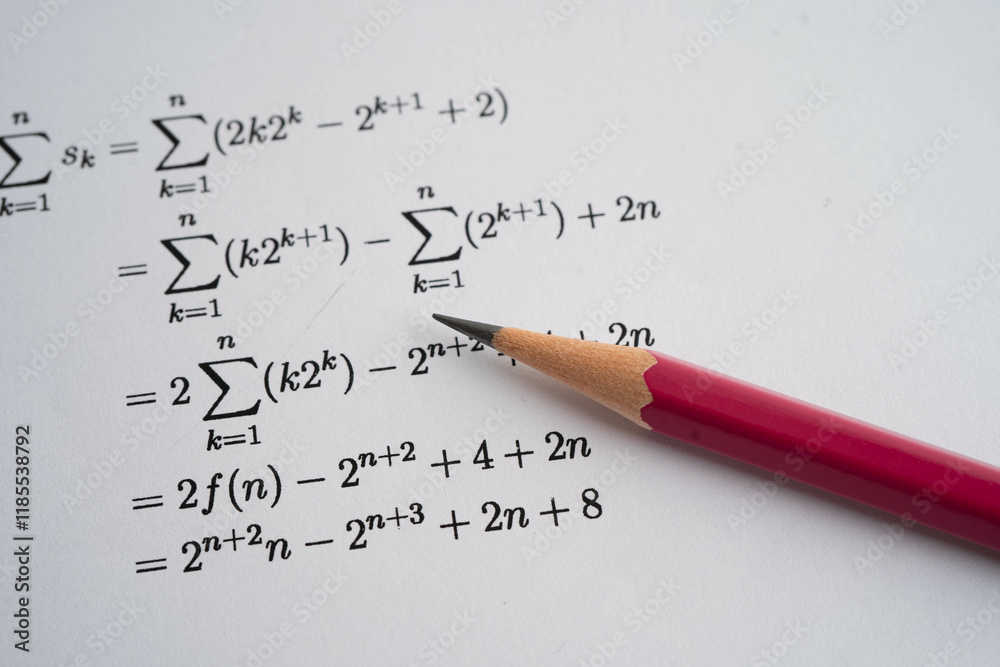 ∑_{k=1}^{n} s_k = ∑_{k=1}^{n} (2k2^k − 2^{k+1} + 2)
= ∑_{k=1}^{n} (k2^{k+1}) − ∑_{k=1}^{n} (2^{k+1}) + 2n
= 2 ∑_{k=1}^{n} (k2^k) − 2^{n+2} + 4 + 2n
= 2f(n) − 2^{n+2} + 4 + 2n
= 2^{n+2}n − 2^{n+3} + 2n + 8
Adobe Stock | #1185538792